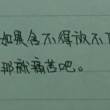 如果舍不得放不下
那就痛苦吧。